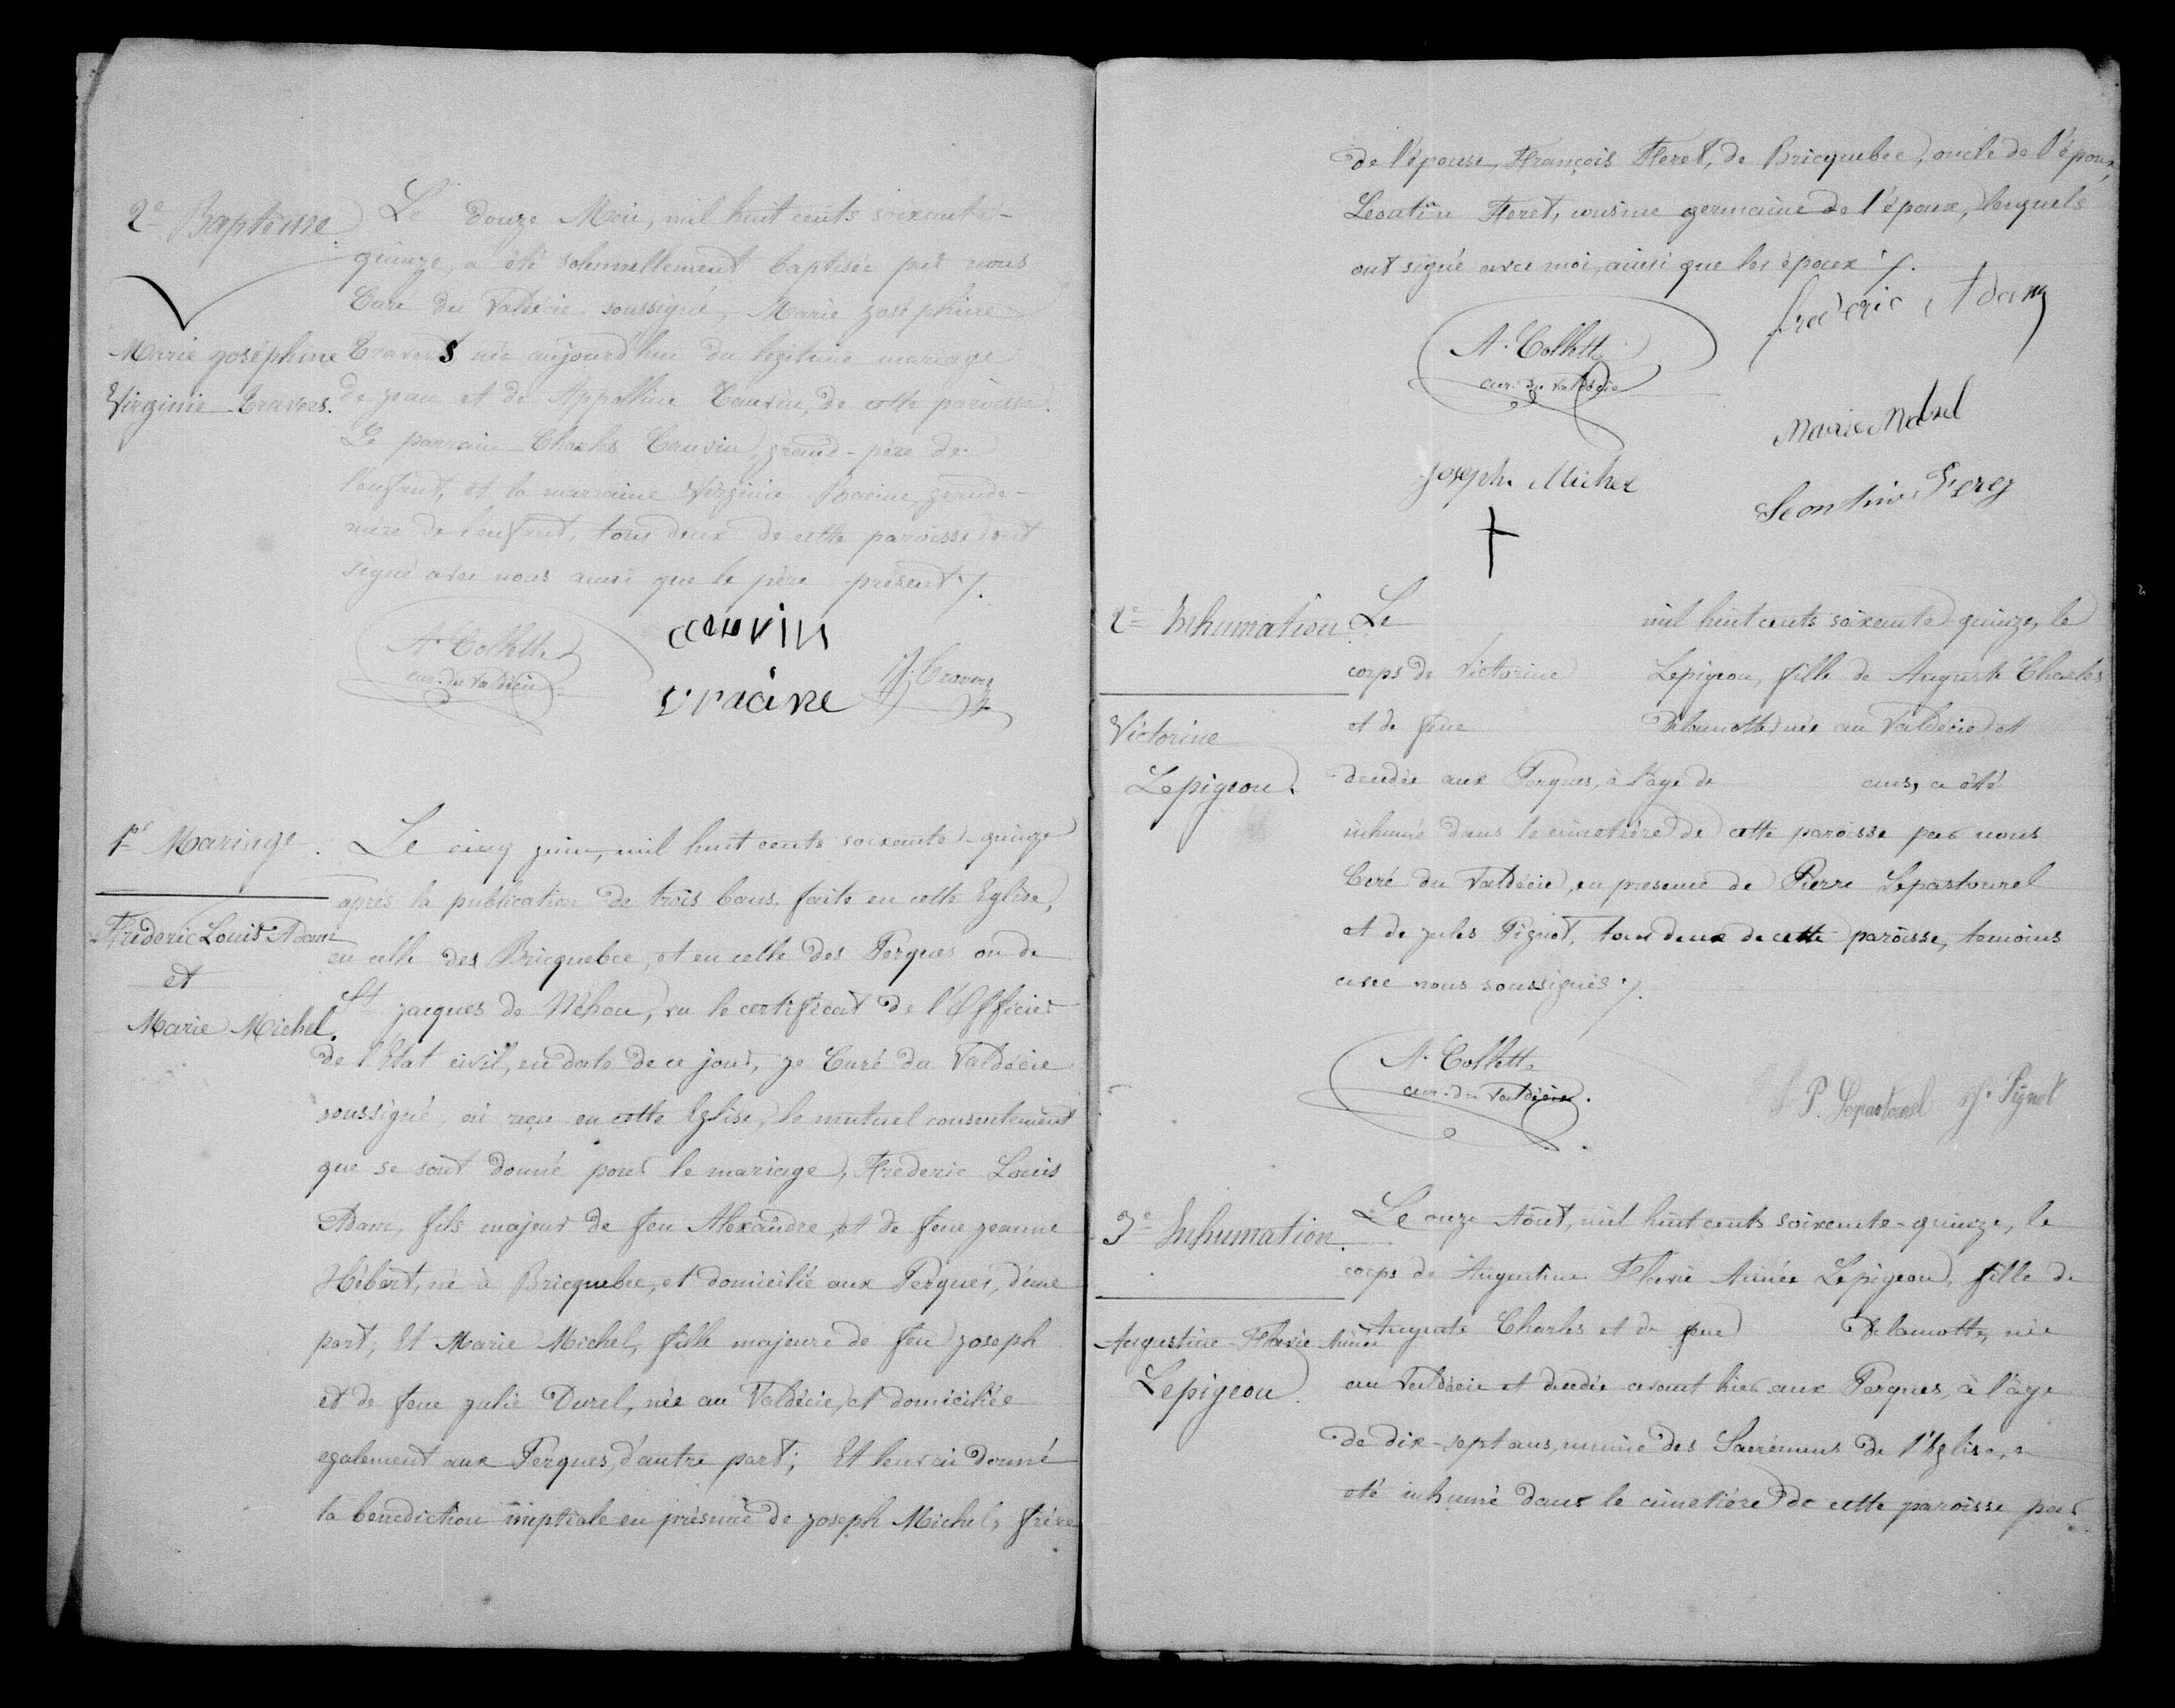 2e Baptême
Marie Joséphine
Virginie Travers.
Le douze Mai, mil huit cents soixante-
quinze, a été solennellement baptisée par nous
Curé du Valdécie soussigné, Marie Joséphine
Travers née aujourd'hui du légitime mariage
de Jean et de Appolline Cauvin, de cette paroisse.
Le parrain Charles Cauvin, grand-père de
l'enfant, et la marraine Virginie Racine grande-
mère de l'enfant, tous deux de cette paroisse ont
signé avec nous ainsi que le père présent ./.
A. Collette
cur. du Valdécie
cauvin
v racine
J. Travers
1er Mariage.
Frederic Louis Adam
et
Marie Michel.
Le cinq juin, mil huit cents soixante-quinze
après la publication de trois bans faite en cette Eglise,
en celle des Bricquebec, et en celle des Perques ou de
St Jacques de Néhou, vu le certificat de l'Officier
de l'Etat civil, en date de ce jour, je Curé du Valdécie
soussigné, ai reçu en cette Eglise, le mutuel consentement
que se sont donné pour le mariage, Frederic Louis
Adam, fils majeur de feu Alexandre, et de feue Jeanne
Hébert, né à Bricquebec, et domicilié aux Perques, d'une
part; Et Marie Michel, fille majeure de feu Joseph
et de feue Julie Durel, née au Valdécie, et domiciliée
egalement aux Perques, d'autre part; Et leur ai donné
la bénediction nuptiale en présence de Joseph Michel, frère
de l'épouse, François Feret, de Bricquebec, oncle de l'époux,
Leontine Feret, cousine germaine de l'époux, lesquels
ont signé avec moi, ainsi que les époux ./.
A. Collette
cur. du Valdécie
frederic Adam
Marie Michel
Joseph Michel
Leontine Feret
2e Inhumation.
Victorine
Lepigeon.
Le mil huit cents soixante-quinze, le
corps de Victorine Lepigeon, fille de Auguste Charles
et de feue Delamotte, née au Valdécie et
décédée aux Perques, à l'âge de ans, a été
inhumé dans le cimetière de cette paroisse par nous
Curé du Valdécie, en présence de Pierre Lepastourel
et de Jules Pignot, tous deux de cette paroisse, temoins
avec nous soussignés ./.
A. Collette
cur. du Valdécie.
P. Lepastourel J. Pignot
3e Inhumation.
Augustine Flavie Aimée
Lepigeon.
Le onze Août, mil huit cents soixante-quinze, le
corps de Augustine Flavie Aimée Lepigeon, fille de
Auguste Charles et de feue Delamotte, née
au Valdécie et décédée avant hier aux Perques, à l'âge
de dix-sept ans, munie des Sacrémens de l'Eglise, a
été inhumé dans le cimetière de cette paroisse par